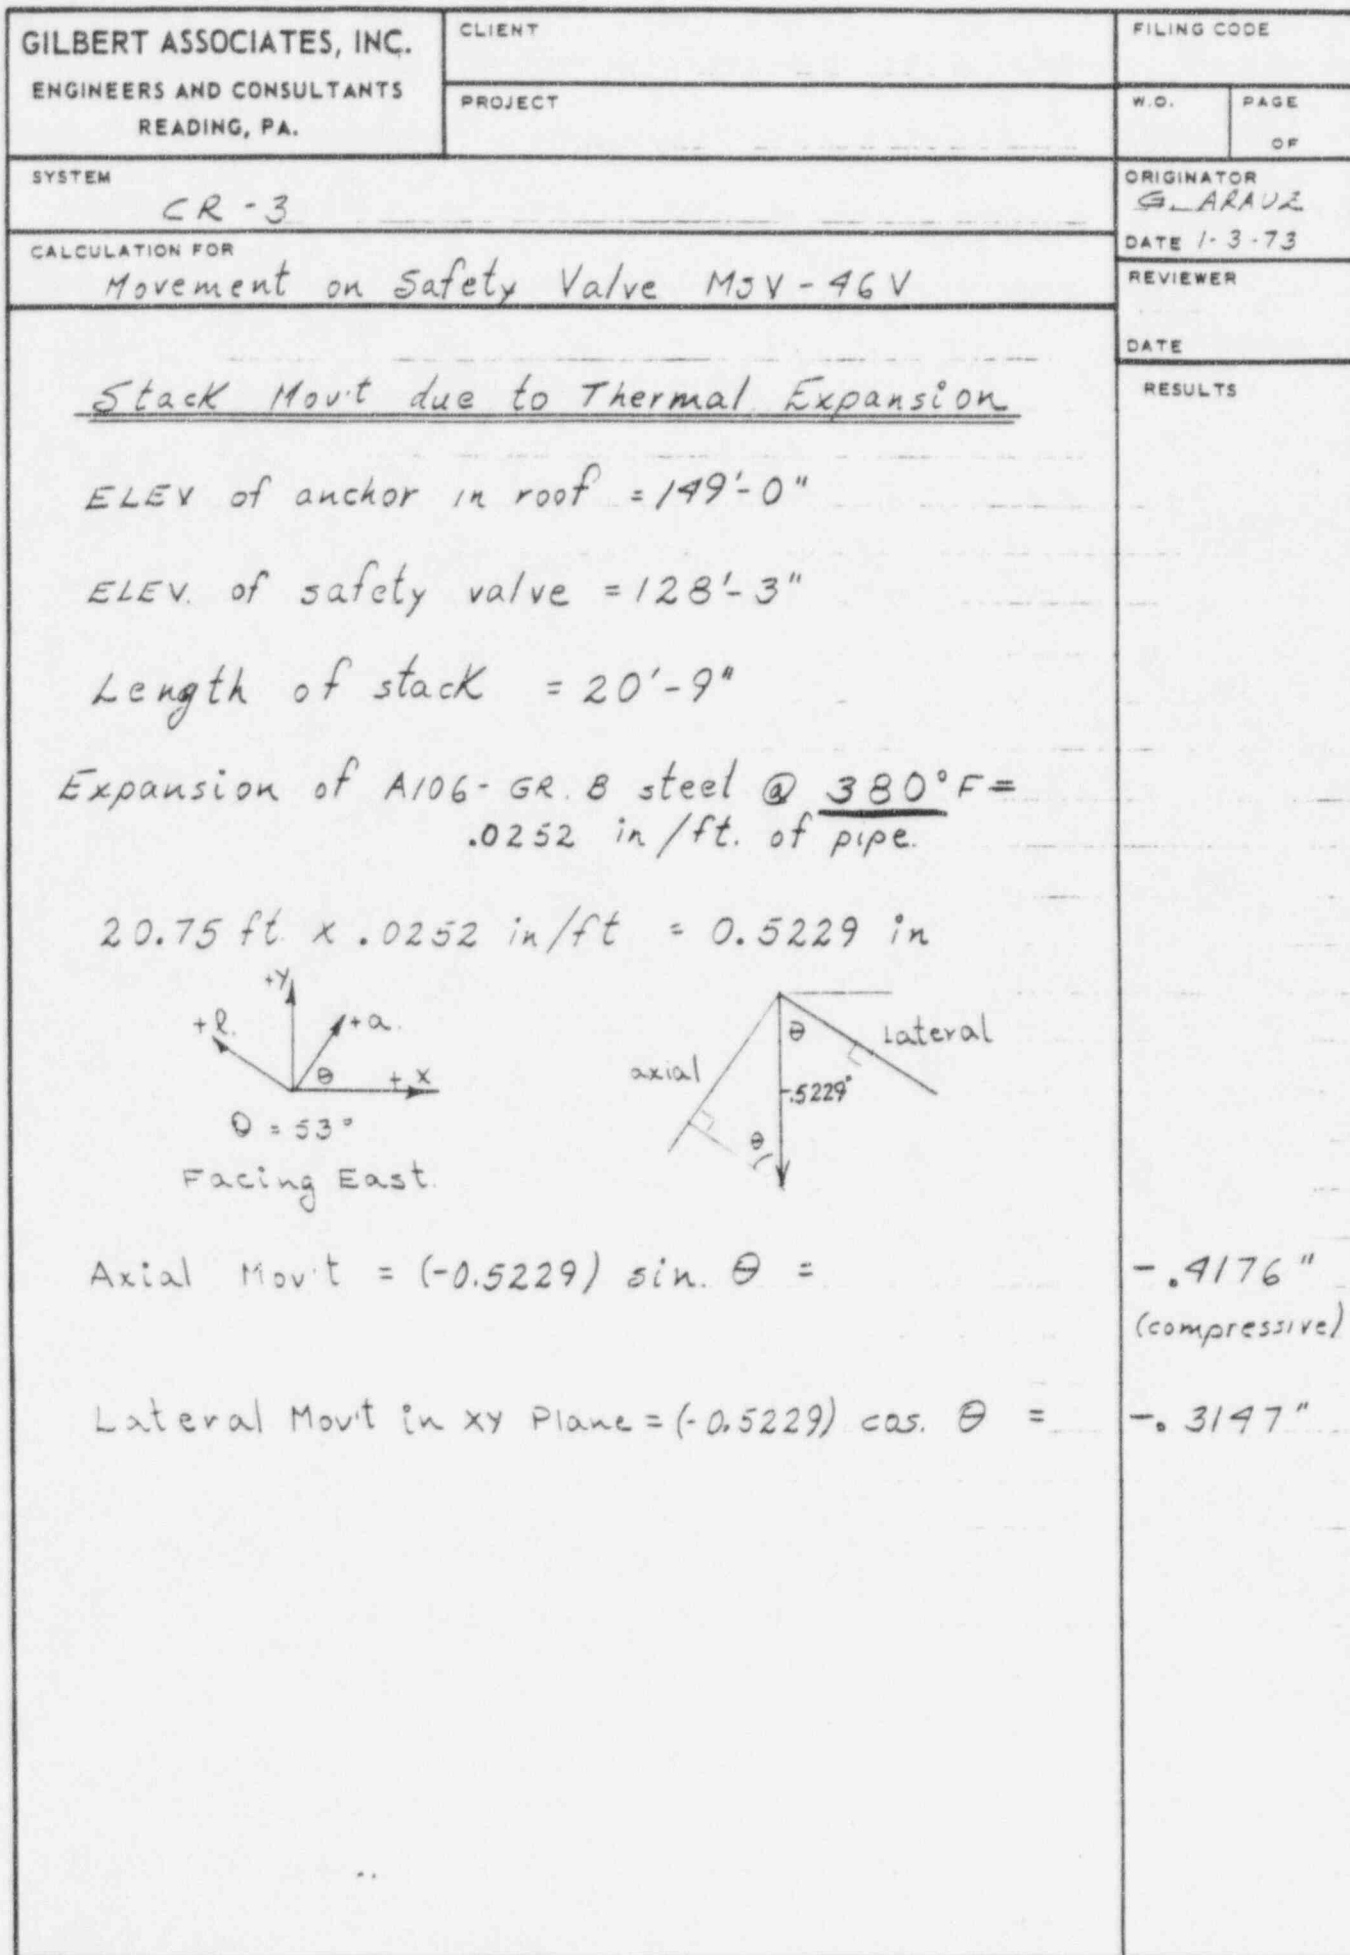 GILBERT ASSOCIATES, INC.
ENGINEERS AND CONSULTANTS
READING, PA.
CLIENT
PROJECT
FILING CODE
W.O.
PAGE
OF
SYSTEM
CR-3
ORIGINATOR
G. ARAUZ
DATE 1-3-73
CALCULATION FOR
Movement on Safety Valve MSV-46V
REVIEWER
DATE
RESULTS
Stack Mov't due to Thermal Expansion
ELEV of anchor in roof = 149'-0"
ELEV. of safety valve = 128'-3"
Length of stack = 20'-9"
Expansion of A106-GR. B steel @ 380°F =
.0252 in/ft. of pipe.
20.75 ft. x .0252 in/ft = 0.5229 in
+Y
+l.
+a.
θ
+ X
θ = 53°
Facing East.
θ
Lateral
axial
-.5229"
θ
Axial Mov't = (-0.5229) sin. θ =
-.4176"
(compressive)
Lateral Mov't in XY Plane = (-0.5229) cos. θ =
-.3147"